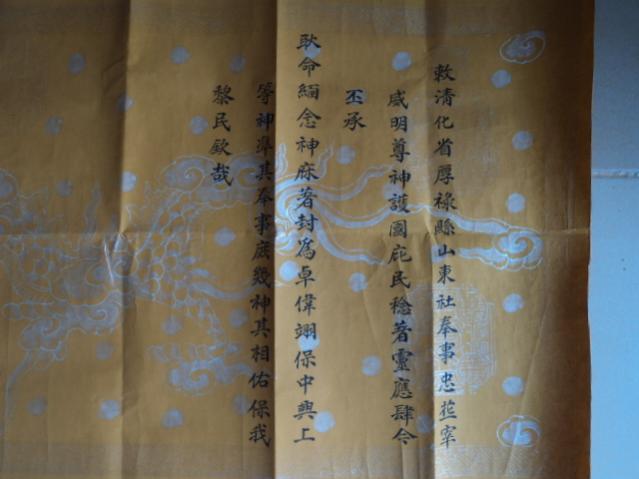 敕清化省厚祿縣山東社奉事忠莅宰
威明尊神護國庇民稔著靈應肆今
丕承
耿命緬念神庥著封爲卓偉翊保中興上
等神準其奉事庶幾神其相佑保我
黎民欽哉